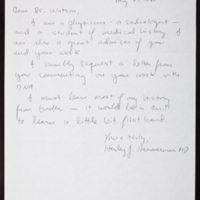 Dear Dr. Watson,
I am a physician - a radiologist -
and a student of medical history. I
am also a great admirer of you
and your work.
I humbly request a letter from
you commenting on your work with
DNA.
I must learn most of my history
from books - it would be nice
to learn a little bit first hand.
Yours truly,
MD